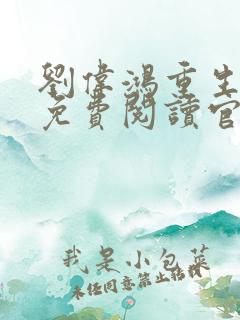 劉偉鴻重生
免費閱讀官
我是小包菜
未经同意禁止转载